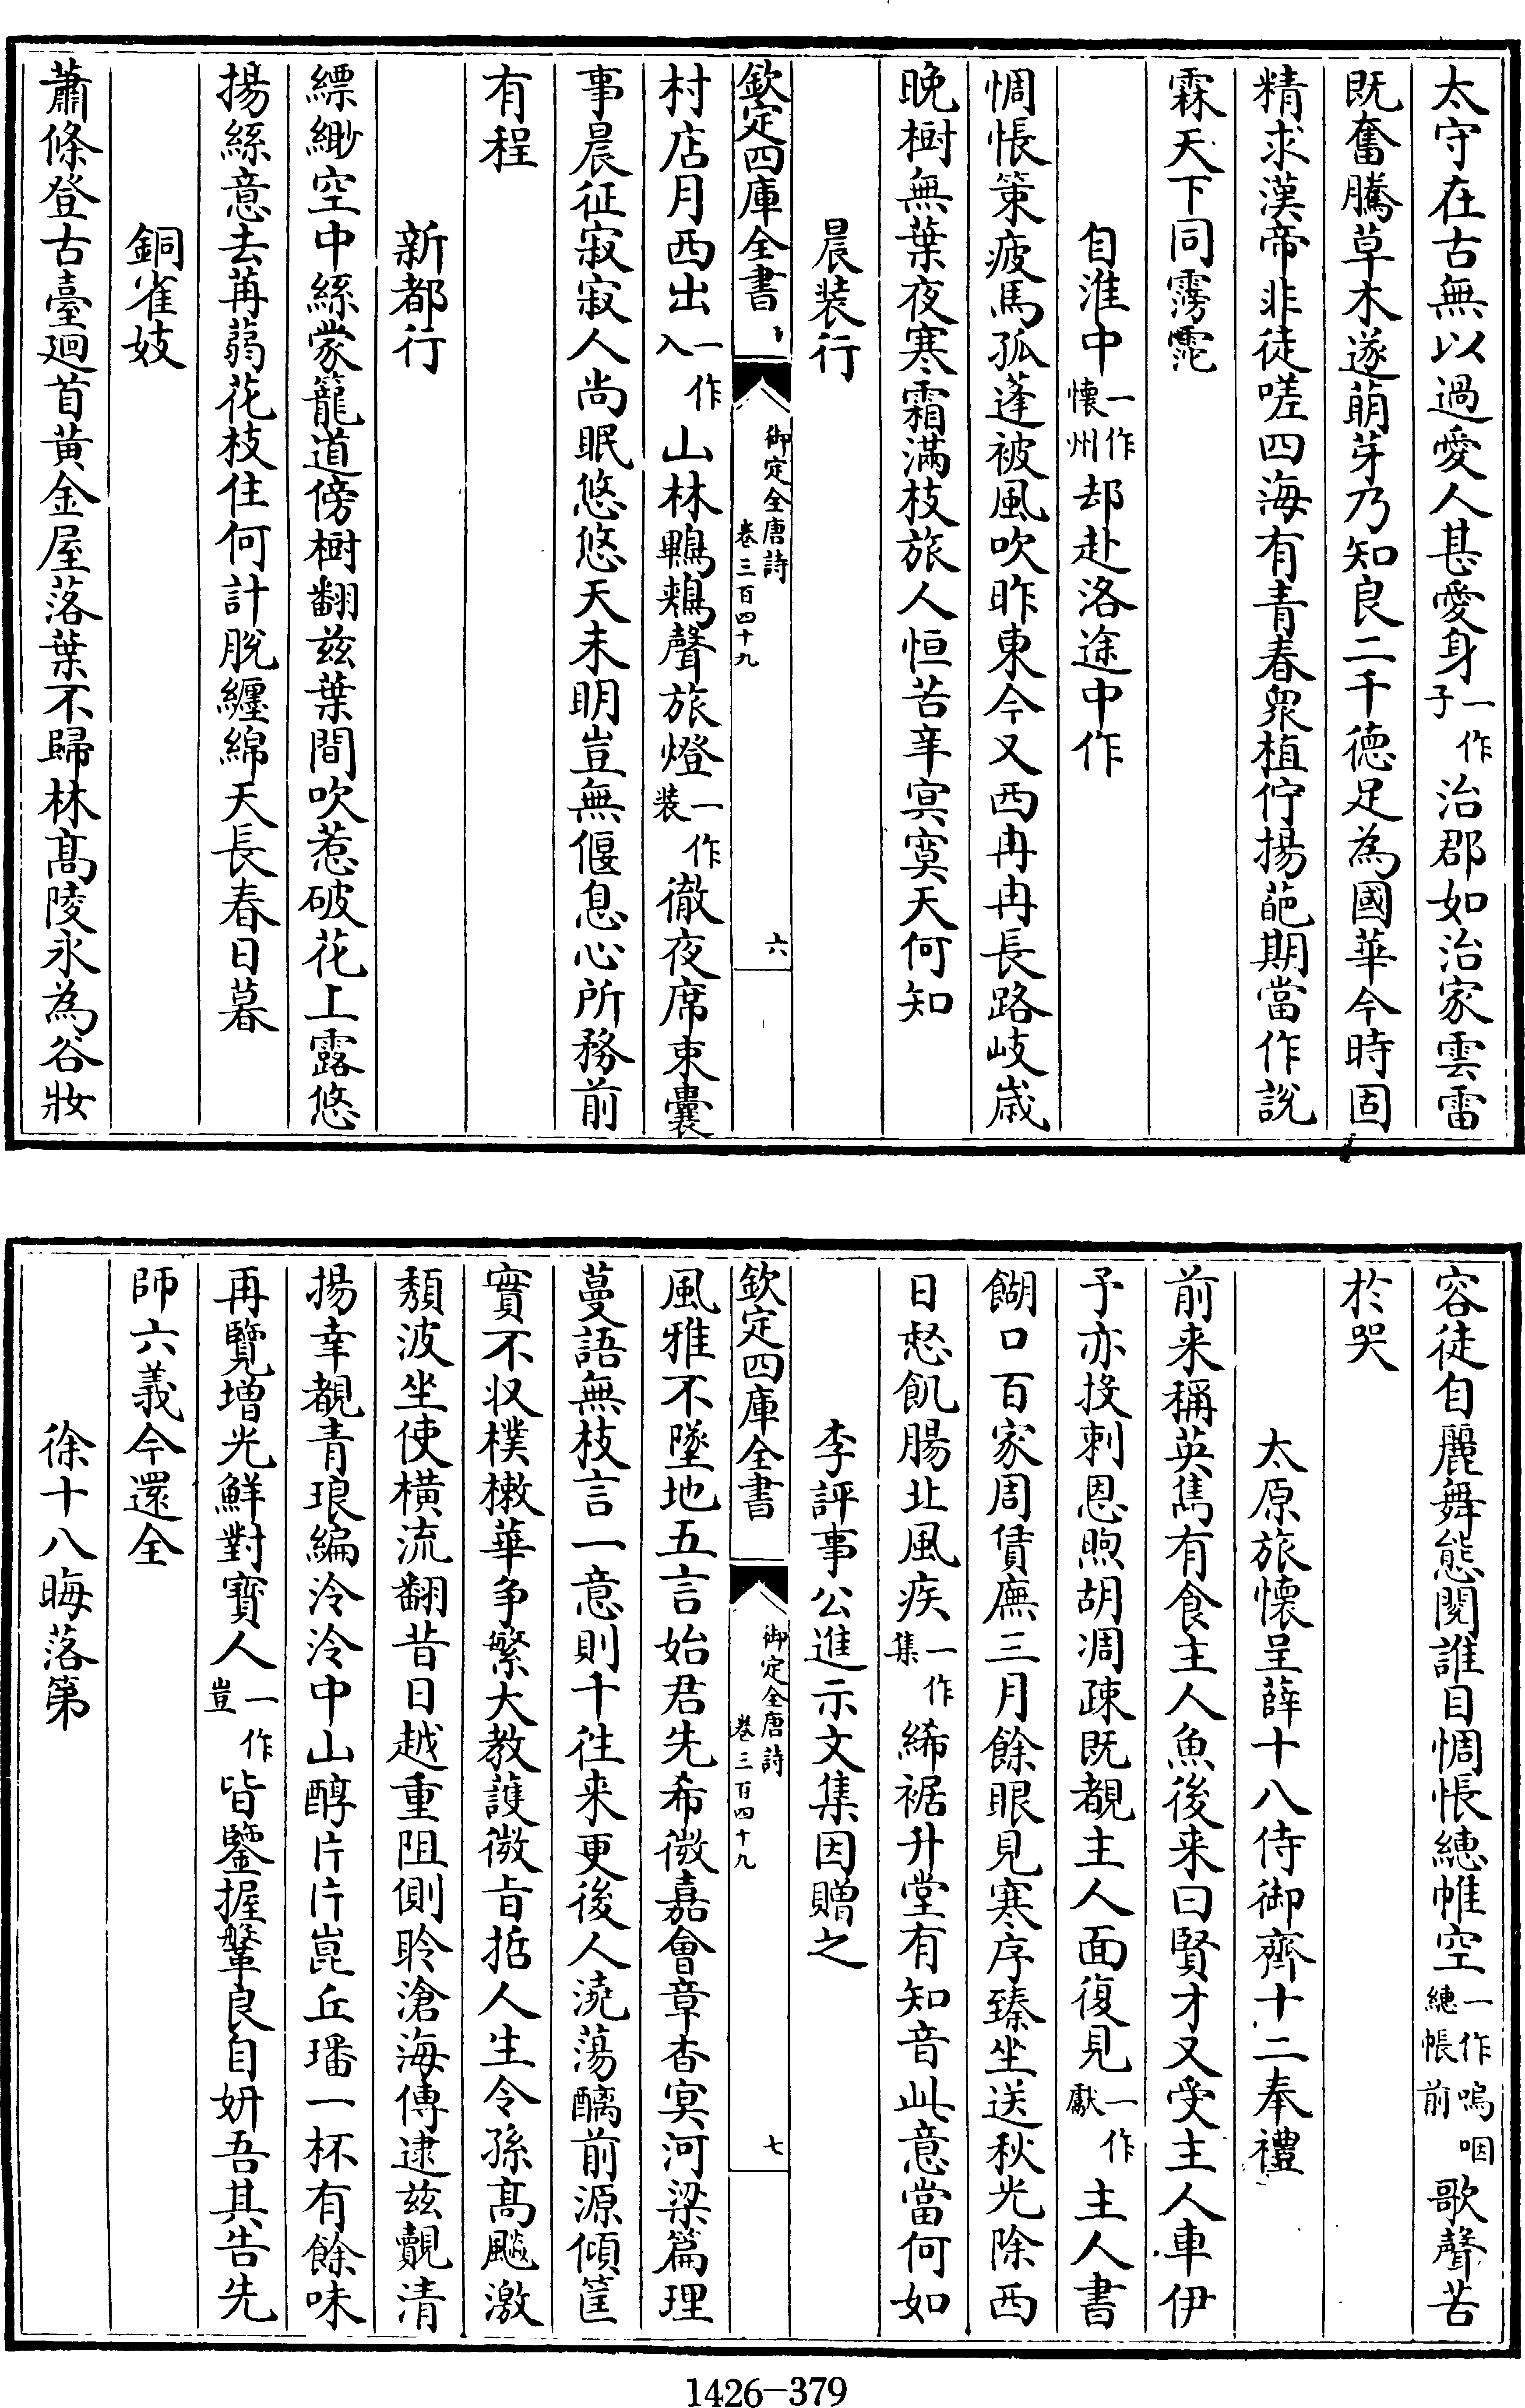 太守在古無以過愛人甚愛身一作子治郡如治家雲雷
既奮騰草木遂萌芽乃知良二千德足為國華今時固
精求漢帝非徒嗟四海有青春衆植佇揚葩期當作説
霖天下同霶霮
自淮中一作懷州却赴洛途中作
惆悵策疲馬孤蓬被風吹昨東今又西冉冉長路岐歳
晚樹無葉夜寒霜滿枝旅人恒苦辛㝠寞天何知
晨装行
欽定四庫全書
御定全唐詩
卷三百四十九
六
村店月西出一作入山林鵯鶋聲旅燈一作装徹夜席束囊
事晨征寂寂人尚眠悠悠天未明豈無偃息心所務前
有程
新都行
縹緲空中絲蒙籠道傍樹翻兹葉間吹惹破花上露悠
揚絲意去苒蒻花枝住何計脱纏綿天長春日暮
銅雀妓
蕭條登古臺廻首黄金屋落葉不歸林髙陵永為谷妝
容徒自麗舞態閱誰目惆悵繐帷空一作繐帳前嗚咽歌聲苦
於哭
太原旅懷呈薛十八侍御齊十二奉禮
前来稱英雋有食主人魚後来曰賢才又受主人車伊
予亦投刺恩煦胡凋疎既覩主人面復見一作獻主人書
餬口百家周賃廡三月餘眼見寒序臻坐送秋光除西
日惄飢腸北風疾一作集絺裾升堂有知音此意當何如
李評事公進示文集因贈之
欽定四庫全書
御定全唐詩
卷三百四十九
七
風雅不墜地五言始君先希微嘉會章杳㝠河梁篇理
蔓語無枝言一意則千徃来更後人澆蕩醨前源傾筐
實不収樸樕華争繁大教護微㫖哲人生令孫髙飈激
頽波坐使横流翻昔日越重阻側聆滄海傳逮兹覿清
揚幸覩青琅編泠泠中山醇片片崑丘璠一杯有餘味
再覽増光鮮對寳人一作豈皆鑒握鞶良自妍吾其告先
師六義今還全
徐十八晦落第
1426-379